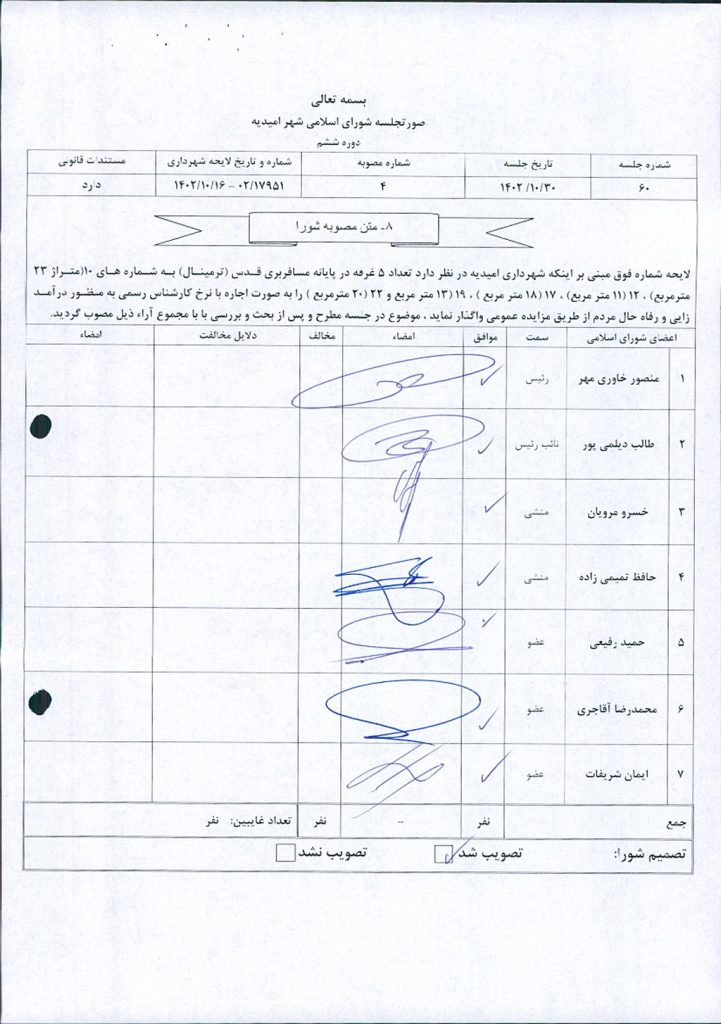 بسمه تعالی
صورتجلسه شورای اسلامی شهر امیدیه
دوره ششم
شماره جلسه تاریخ جلسه شماره مصوبه شماره و تاریخ لایحه شهرداری مستندات قانونی
۶۰ ۱۴۰۲/۱۰/۳۰ ۴ ۰۲/۱۷۹۵۱ – ۱۴۰۲/۱۰/۱۶ دارد
۸- متن مصوبه شورا
لایحه شماره فوق مبنی بر اینکه شهرداری امیدیه در نظر دارد تعداد ۵ غرفه در پایانه مسافربری قدس (ترمینال) به شماره های ۱۰(متراژ ۲۳
مترمربع) ، ۱۲ (۱۱ متر مربع) ، ۱۷ (۱۸ متر مربع ) ، ۱۹ (۱۳ متر مربع و ۲۲ (۲۰ مترمربع ) را به صورت اجاره با نرخ کارشناس رسمی به منظور درآمد
زایی و رفاه حال مردم از طریق مزایده عمومی واگذار نماید ، موضوع در جلسه مطرح و پس از بحث و بررسی با با مجموع آراء ذیل مصوب گردید.
اعضای شورای اسلامی سمت موافق امضاء مخالف دلایل مخالفت امضاء
۱ منصور خاوری مهر رئیس
۲ طالب دیلمی پور نائب رئیس
۳ خسرو مرویان منشی
۴ حافظ تمیمی زاده منشی
۵ حمید رفیعی عضو
۶ محمدرضا آقاجری عضو
۷ ایمان شریفات عضو
جمع نفر -- نفر تعداد غایبین: نفر
تصمیم شورا: تصویب شد تصویب نشد